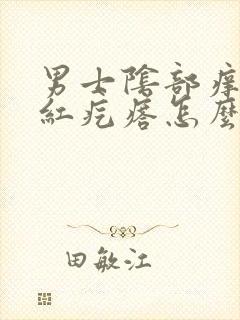 男士陰部痒
紅疙瘩怎麼
田敏江